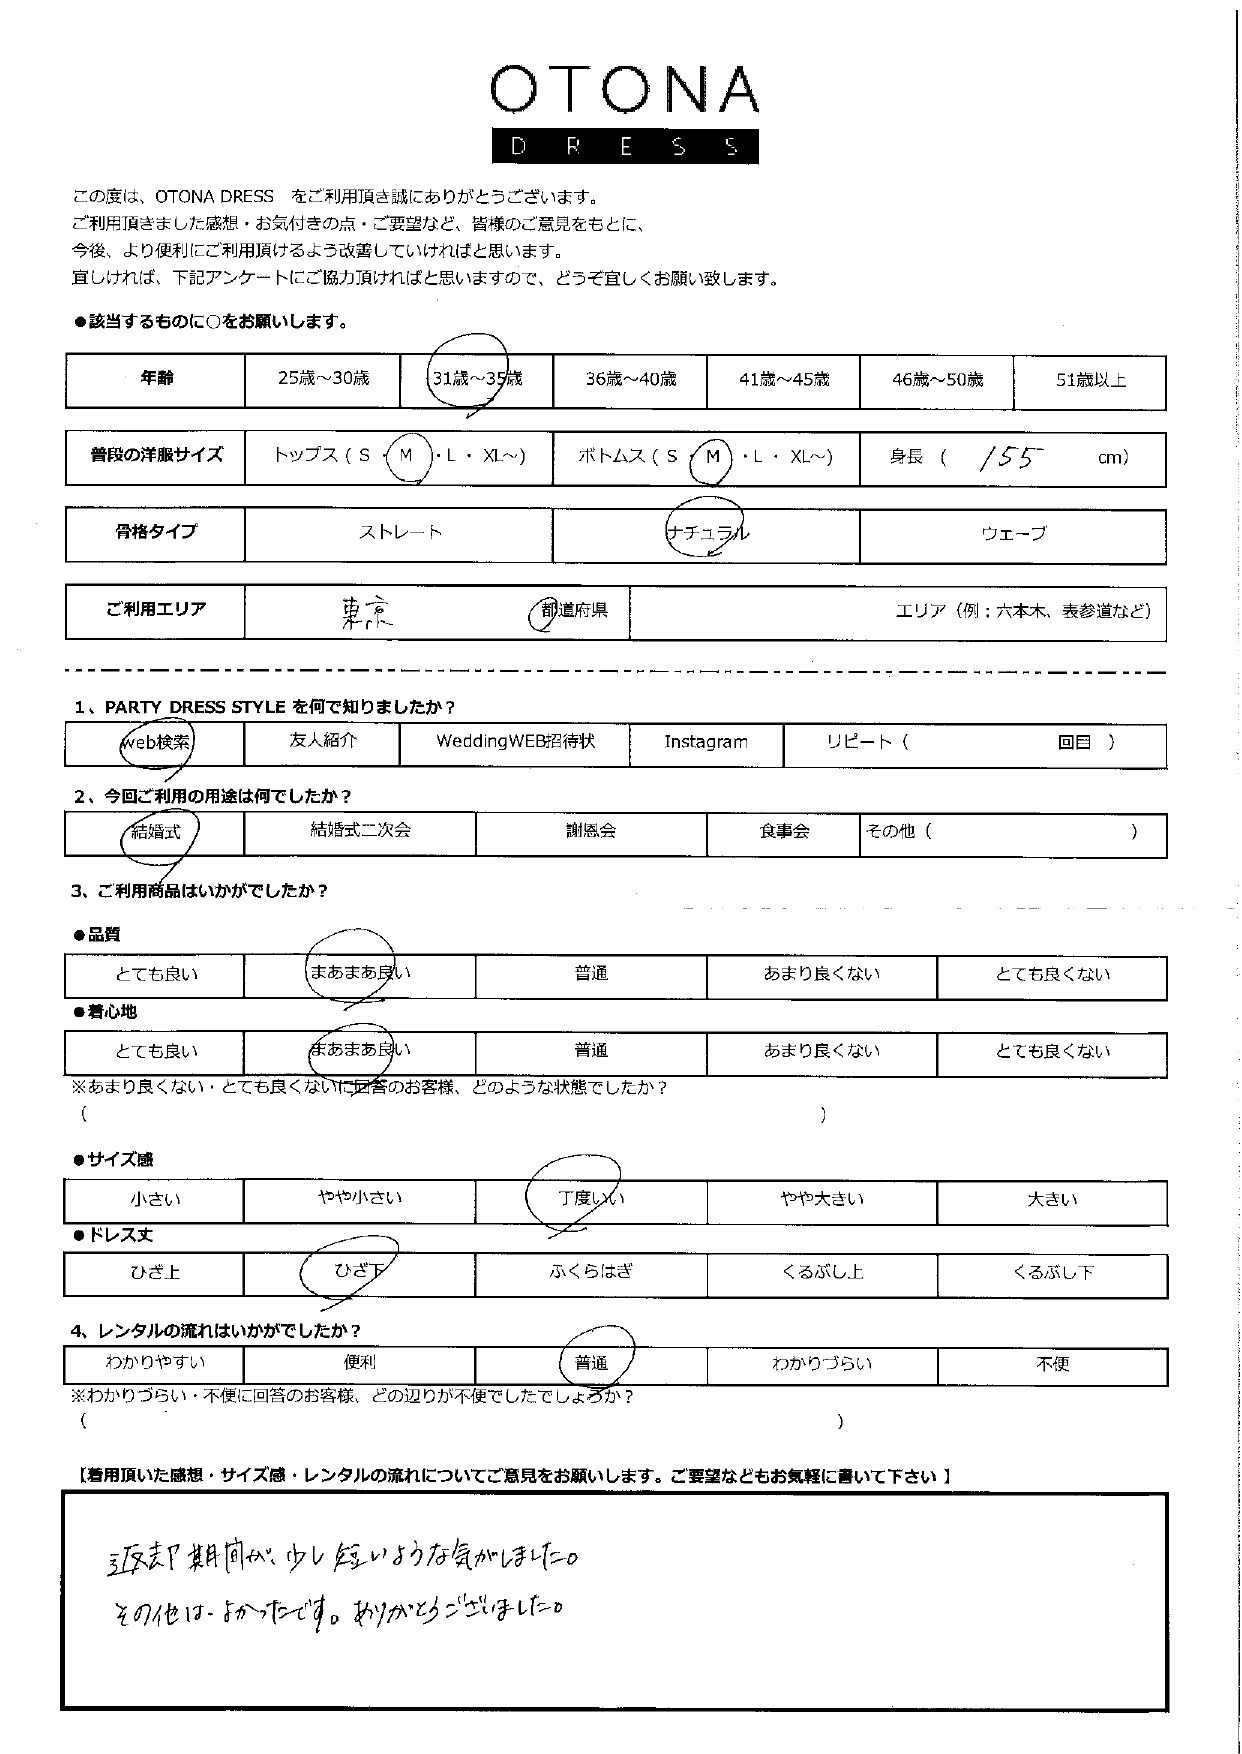 OTONA
DRESS
この度は、OTONA DRESS をご利用頂き誠にありがとうございます。
ご利用頂きました感想・お気付きの点・ご要望など、皆様のご意見をもとに、
今後、より便利にご利用頂けるよう改善していければと思います。
宜しければ、下記アンケートにご協力頂ければと思いますので、どうぞ宜しくお願い致します。
●該当するものに○をお願いします。
年齢 25歳～30歳 31歳～35歳 36歳～40歳 41歳～45歳 46歳～50歳 51歳以上
普段の洋服サイズ トップス ( S ・ M ・ L ・ XL～) ボトムス ( S ・ M ・ L ・ XL～) 身長 ( 155 cm)
骨格タイプ ストレート ナチュラル ウェーブ
ご利用エリア 東京 都道府県 エリア（例；六本木、表参道など）
1、PARTY DRESS STYLE を何で知りましたか？
web検索 友人紹介 WeddingWEB招待状 Instagram リピート（ 回目 ）
2、今回ご利用の用途は何でしたか？
結婚式 結婚式二次会 謝恩会 食事会 その他（ ）
3、ご利用商品はいかがでしたか？
●品質
とても良い まあまあ良い 普通 あまり良くない とても良くない
●着心地
とても良い まあまあ良い 普通 あまり良くない とても良くない
※あまり良くない・とても良くないに回答のお客様、どのような状態でしたか？
（ ）
●サイズ感
小さい やや小さい 丁度いい やや大きい 大きい
●ドレス丈
ひざ上 ひざ下 ふくらはぎ くるぶし上 くるぶし下
4、レンタルの流れはいかがでしたか？
わかりやすい 便利 普通 わかりづらい 不便
※わかりづらい・不便に回答のお客様、どの辺りが不便でしたでしょうか？
（ ）
【着用頂いた感想・サイズ感・レンタルの流れについてご意見をお願いします。ご要望などもお気軽に書いて下さい 】
返却期間が、少し短いような気がしました。
その他は、よかったです。ありがとうございました。